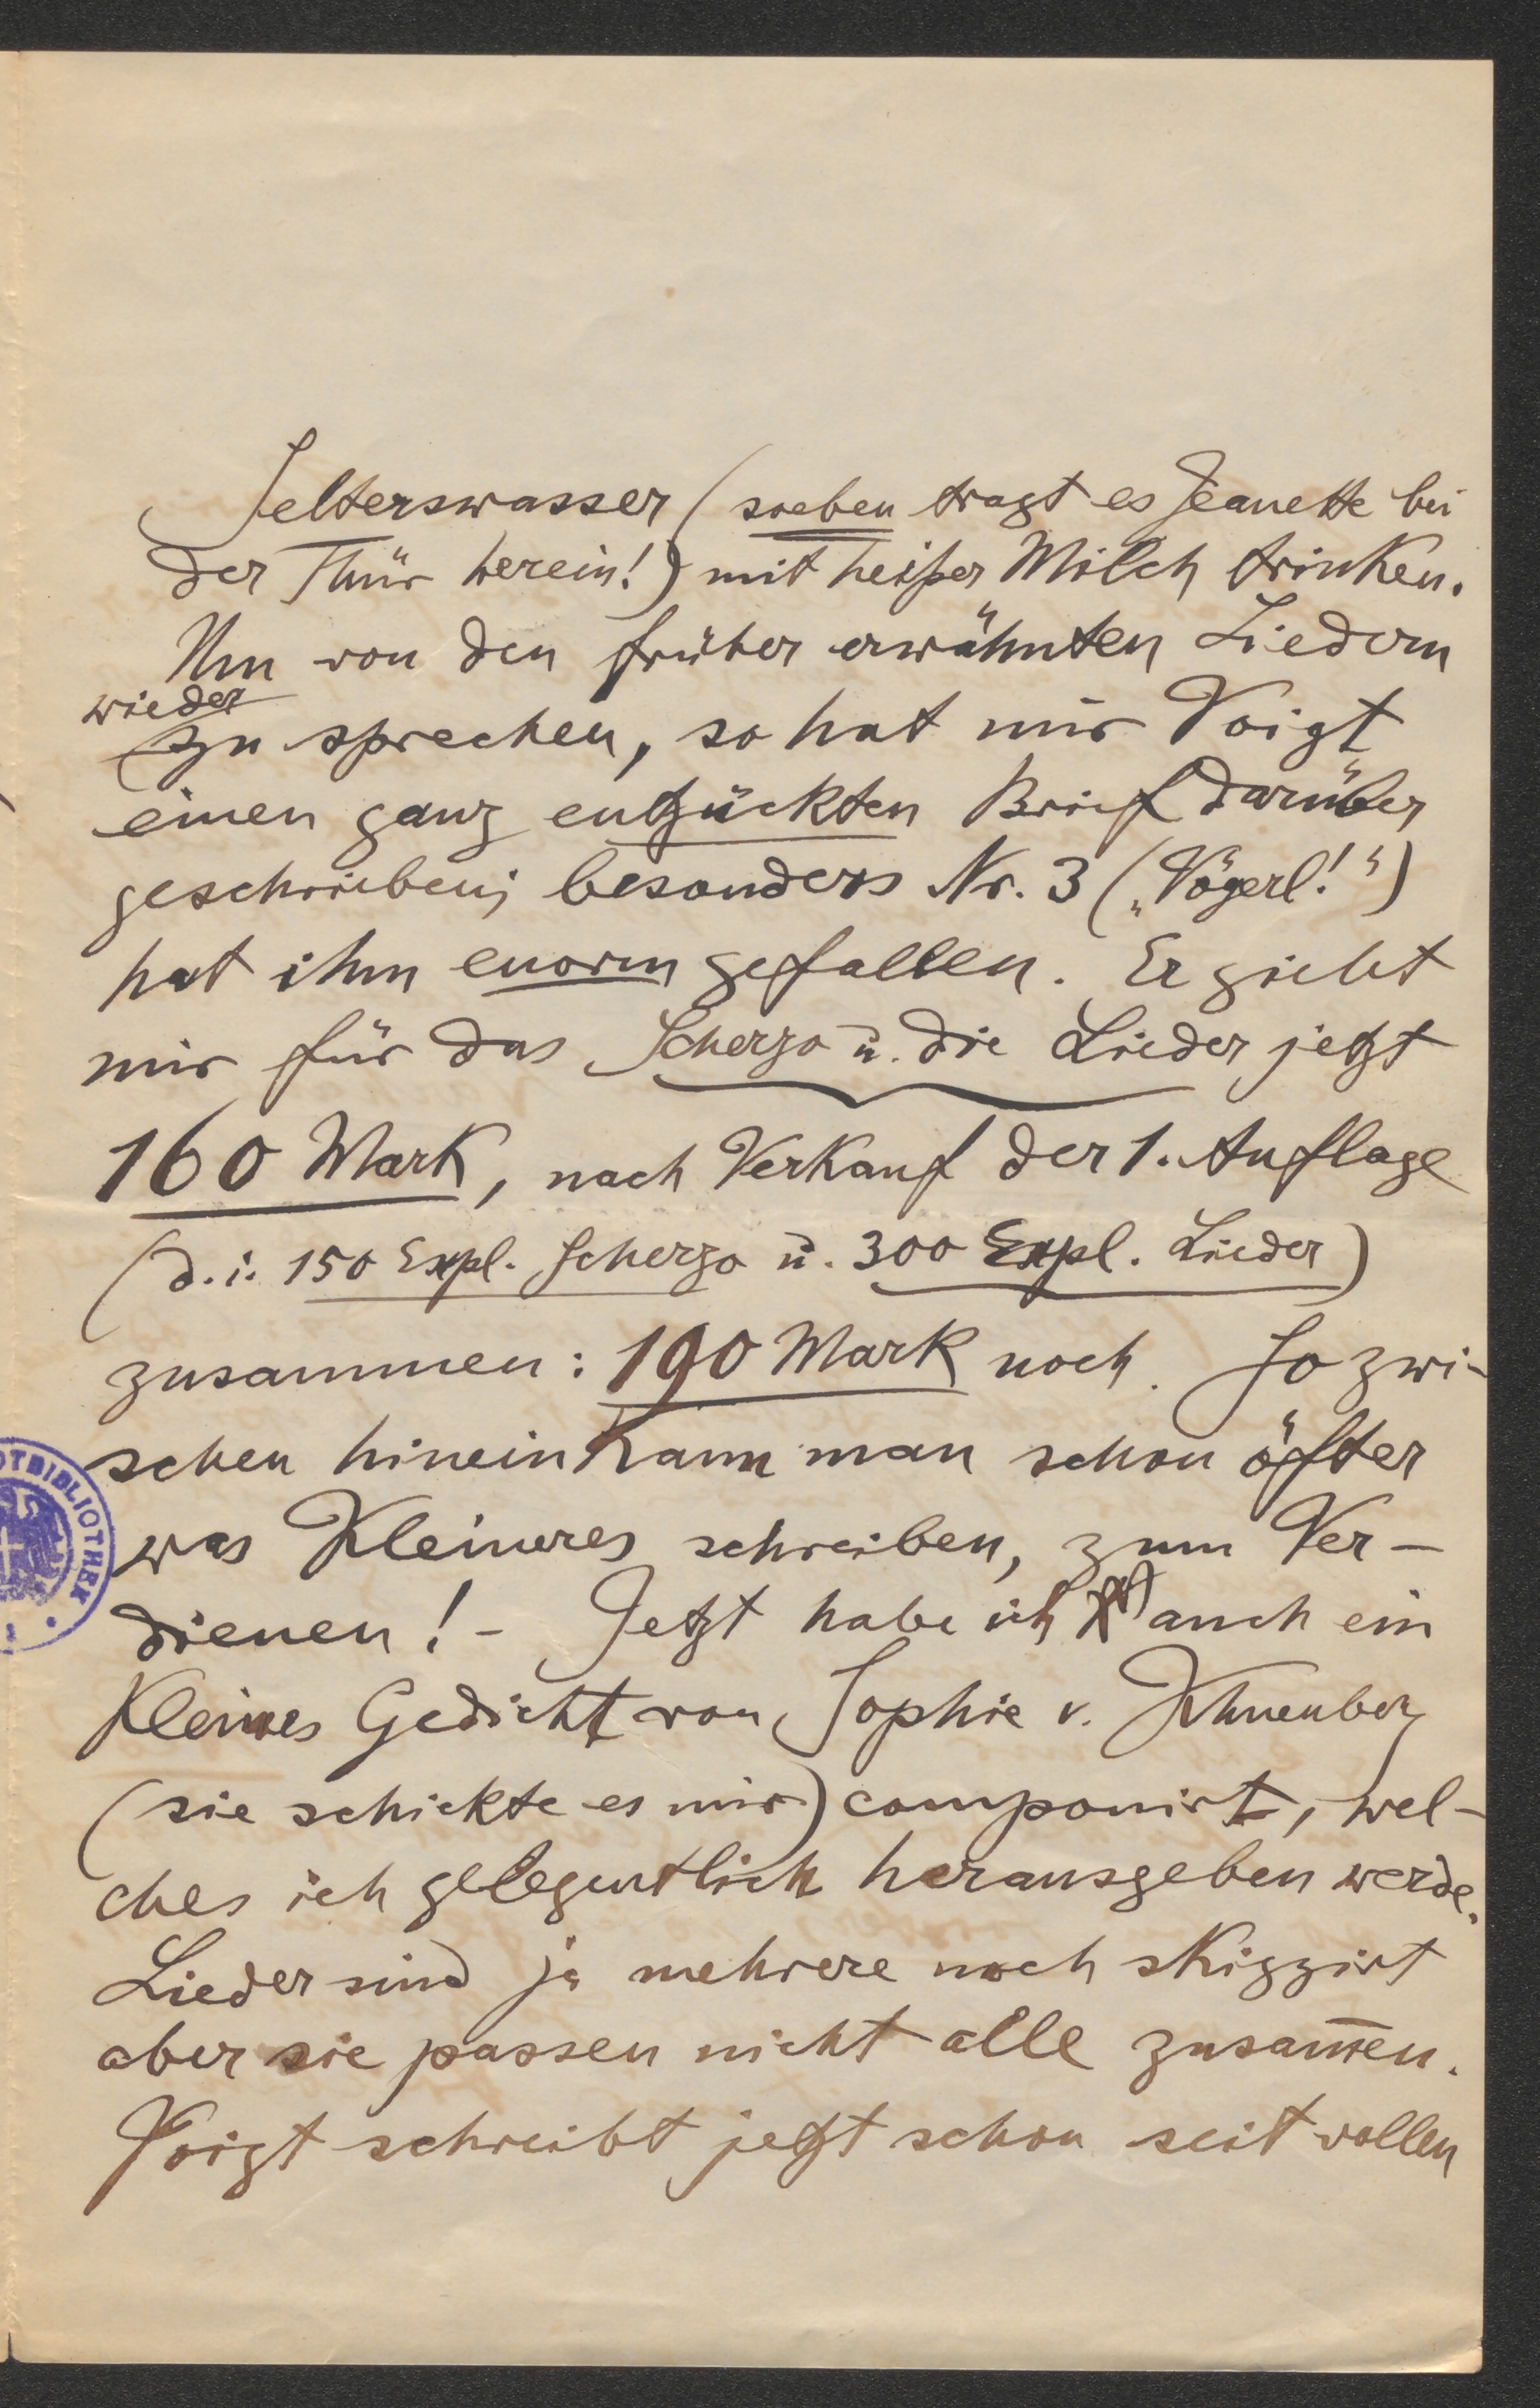 Selterswasser (soeben tragt es Jeanette bei
der Thür herein!) mit heißer Milch trinken.
Um von den früher erwähnten Liedern
wieder
zu sprechen, so hat mir Voigt
einen ganz entzückten Brief darüber
geschrieben; besonders Nr. 3 („Vögerl!“)
hat ihm enorm gefallen. Er giebt
mir für das Scherzo u. die Lieder jetzt
160 Mark, nach Verkauf der 1. Auflage
(d. i. 150 Expl. Scherzo u. 300 Expl. Lieder)
zusammen: 190 Mark noch. So zwi-
schen hinein kann man schon öfter
was Kleineres schreiben, zum Ver-
dienen! - Jetzt habe ich auch ein
kleines Gedicht von Sophie v. Khuenberg
(sie schickte es mir) componirt, wel-
ches ich gelegentlich herausgeben werde.
Lieder sind ja mehrere noch skizzirt
aber sie passen nicht alle zusam̄en.
Voigt schreibt jetzt schon seit vollen
OTBIBLIOTHEK